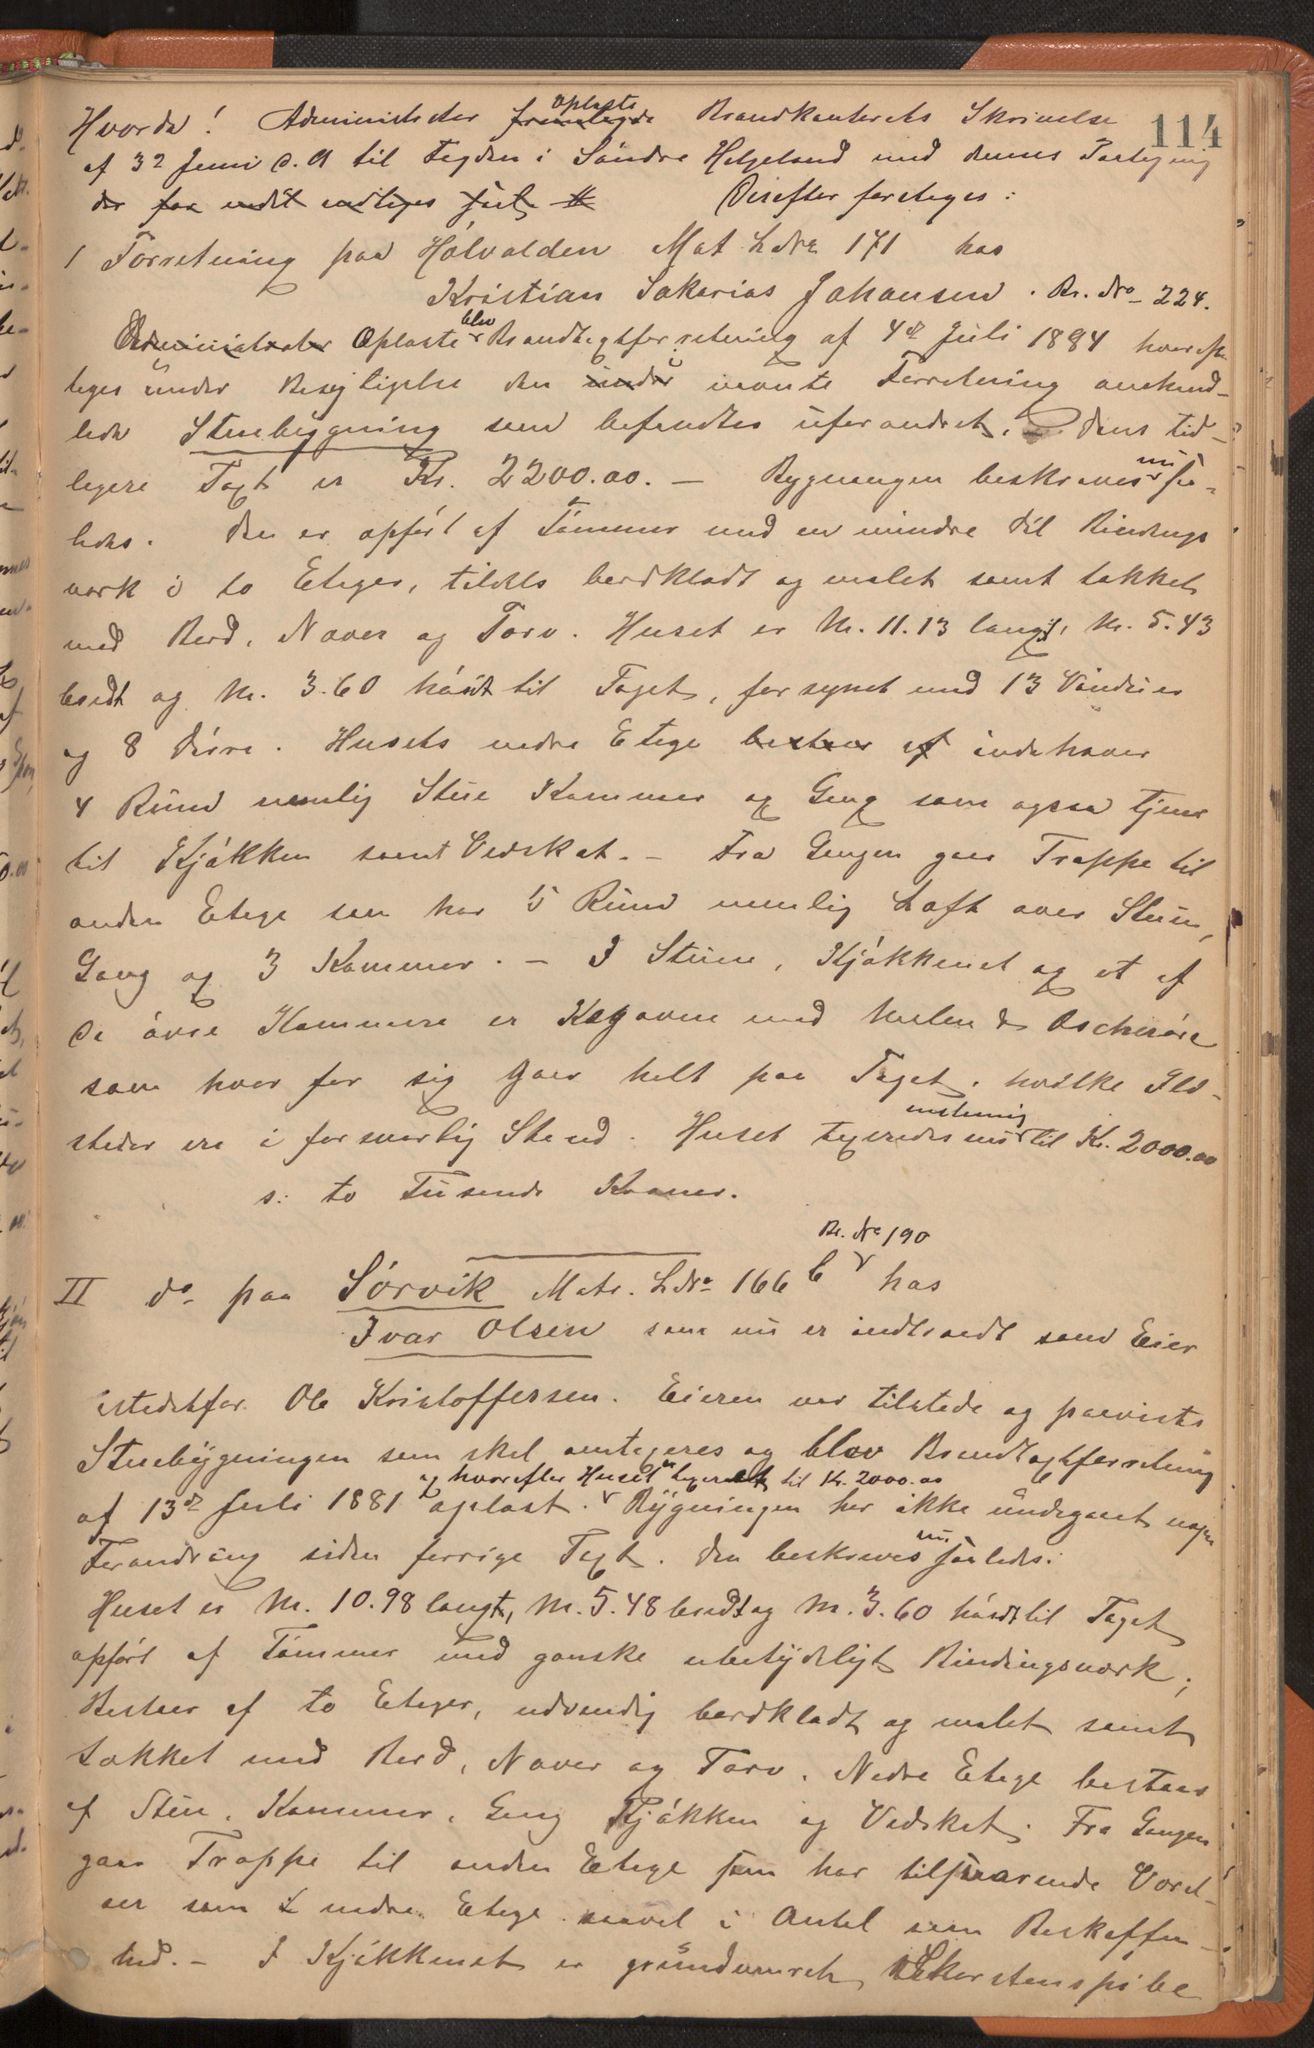 114
Hvorda! Administrator fremlagde oplæste Brandkontorets Skrivelse
af 32 Juni d. A til Fogden i Söndre Helgeland med dennes Paategning
Derefter foretoges:
1 Forretning paa Holvalden Mat. L. No 171 hos
Kristian Sakarias Johansen. Br. No 224.
Administrator Oplæste blev Brandtaxtforretning af 4de Juli 1884 hvorefter
toges under Besigtigelse den under nævnte Forretning anmeld-
ledes Stuebygning som befandtes uforandret, dens tid-
ligere Taxt er Kr. 2200.00. — Bygningen beskrives nu saa-
ledes. Den er opfört af Tömmer med en mindre Del Bindings
værk i to Etager, tildels bordklædt og malet samt takket
med Bord, Næver og Torv. Huset er M. 11.13 langt, M. 5.43
bredt og M. 3.60 höit til Taget, forsynet med 13 Vinduer
og 8 Döre. Husets nedre Etage bestaar af indehaver
4 Rum nemlig Stue Kammer og Gang som ogsaa tjener
til Kjökken samt Vedskot. — Fra Gangen gaar Trappe til
anden Etage som har 5 Rum nemlig Loft over Stuen,
Gang og 3 Kammer. — I Stuen, Kjökkenet og et af
de övre Kammere er Kogovne med
som hver for sig gaar helt paa Taget, hvilke Ild-
steder ere i forsvarlig Stand. Huset taxeredes nu enstemmig til Kr. 2000.00
s: to Tusende Kroner.
Br. No 190
II do paa Sörvik Matr. L. No 166 b hos
Ivar Olsen som nu er indtraadt som Eier
istedetfor Ole Kristoffersen. Eieren var tilstede og paaviste
Stuebygningen som skal omtaxeres og blev Brandtaxtforretning
og hvorefter Huset er taxeret til Kr. 2000.00
af 13de Juli 1881 oplæst. Bygningen har ikke undergaaet nogen
Forandring siden forrige Taxt. Den beskrives nu saaledes:
Huset er M. 10.98 langt, M. 5.48 bredt og M. 3.60 höit til Taget
opfört af Tömmer med ganske ubetydeligt Bindingsværk;
Bestaar af to Etager, udvendig bordklædt og malet samt
takket med Bord, Næver og Torv. Nedre Etage bestaar
af Stue, Kammer, Gang Kjökken og Vedskot. Fra Gangen
gaar Trappe til anden Etage som har tilsvarende Værel-
ser som i nedre Etage saavel i Antal som Beskaffen-
hed. — I Kjökkenet er grundmuret Skorstenspibe